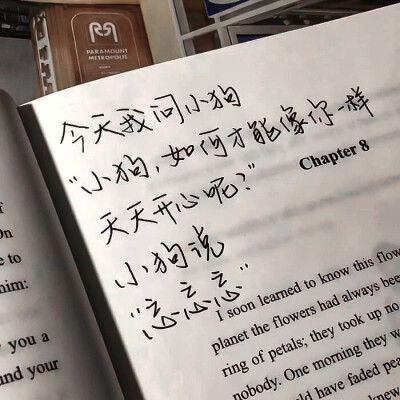 PARAMOUNT
METROPOLIS
今天我问小狗
"小狗,如何才能像你一样
天天开心呢?"
小狗说
"忘忘忘"
Chapter 8
I soon learned to know this flow
planet the flowers had always bee
ring of petals; they took up no
nobody. One morning they w
ld have faded pea
knew
On
e to
him:
you a
nd your